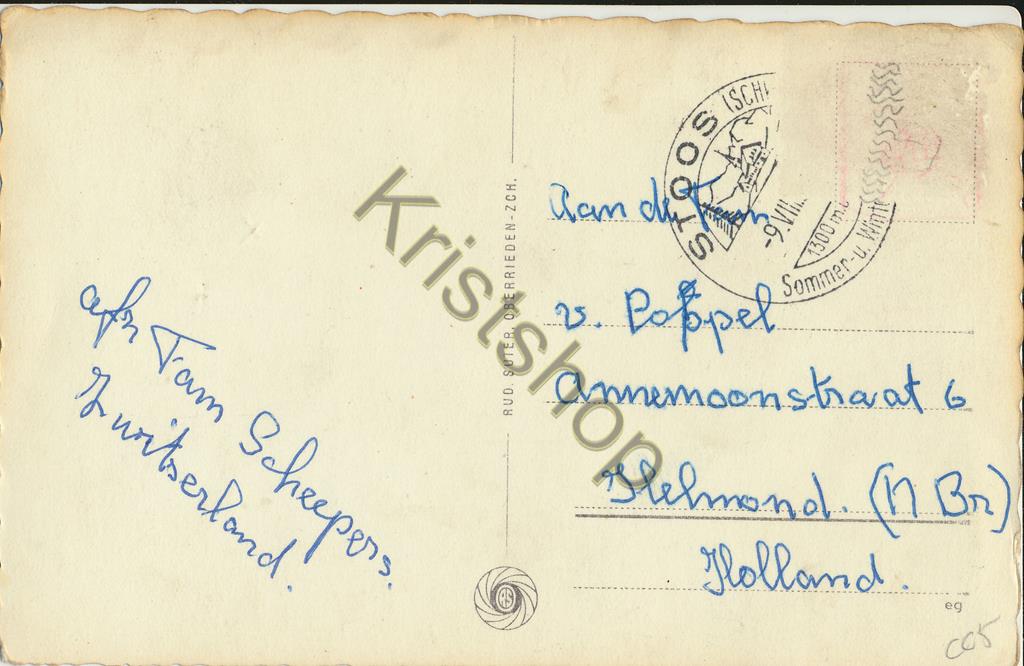 afz Fam Scheepers.
Zwitserland.
RUD. SUTER, OBERRIEDEN-ZCH.
STOOS (SCH
-9.VIII.
1300 m.
Sommer- u. Wint
Aan de Fam
v. Poppel
Annemoonstraat 6
Helmond. (N Br)
Holland.
eg
cc5
Kristshop